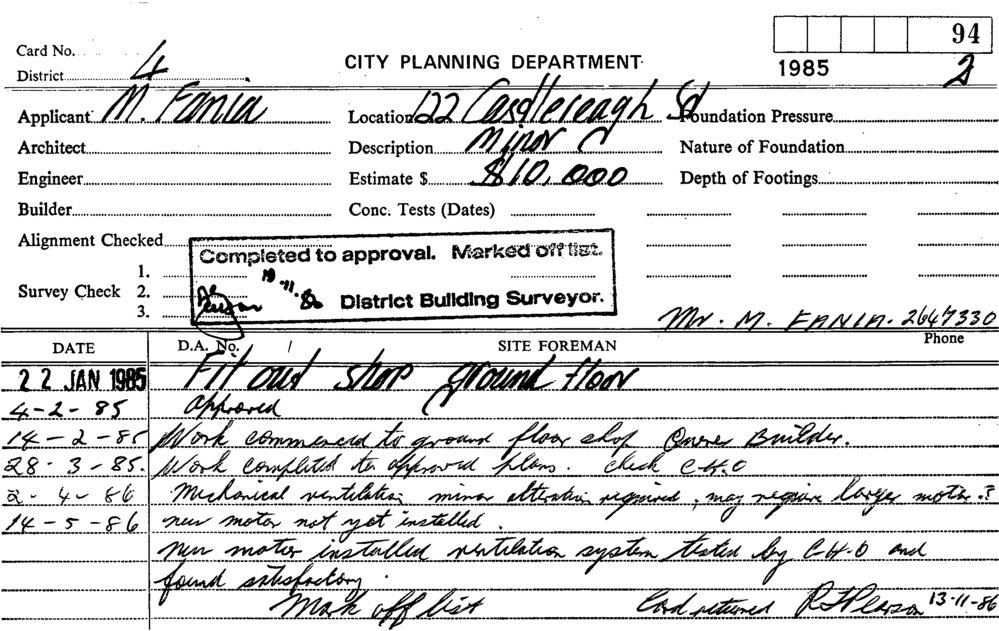 94
Card No.
District 4
CITY PLANNING DEPARTMENT
1985 2
Applicant M. Fania Location 122 Castlereagh St Foundation Pressure
Architect Description Minor C Nature of Foundation
Engineer Estimate $ $10,000 Depth of Footings
Builder Conc. Tests (Dates)
Alignment Checked
Completed to approval. Marked off list.
1.
Survey Check 2.
3.
19.11.86 District Building Surveyor.
Mr. M. FANIA. 2647330
DATE D.A. No. / SITE FOREMAN Phone
22 JAN 1985 Fit out shop ground floor
4-2-85 Approved
14-2-85 Work commenced to ground floor shop Owner Builder.
28.3-85. Work completed to approved plans. check C.H.O
2-4-86 Mechanical ventilation minor alteration required, may require larger motor.?
14-5-86 new motor not yet installed.
new motor installed ventilation system tested by C-H-O and
found satisfactory.
Mark off list Card returned R Pearson 13-11-86